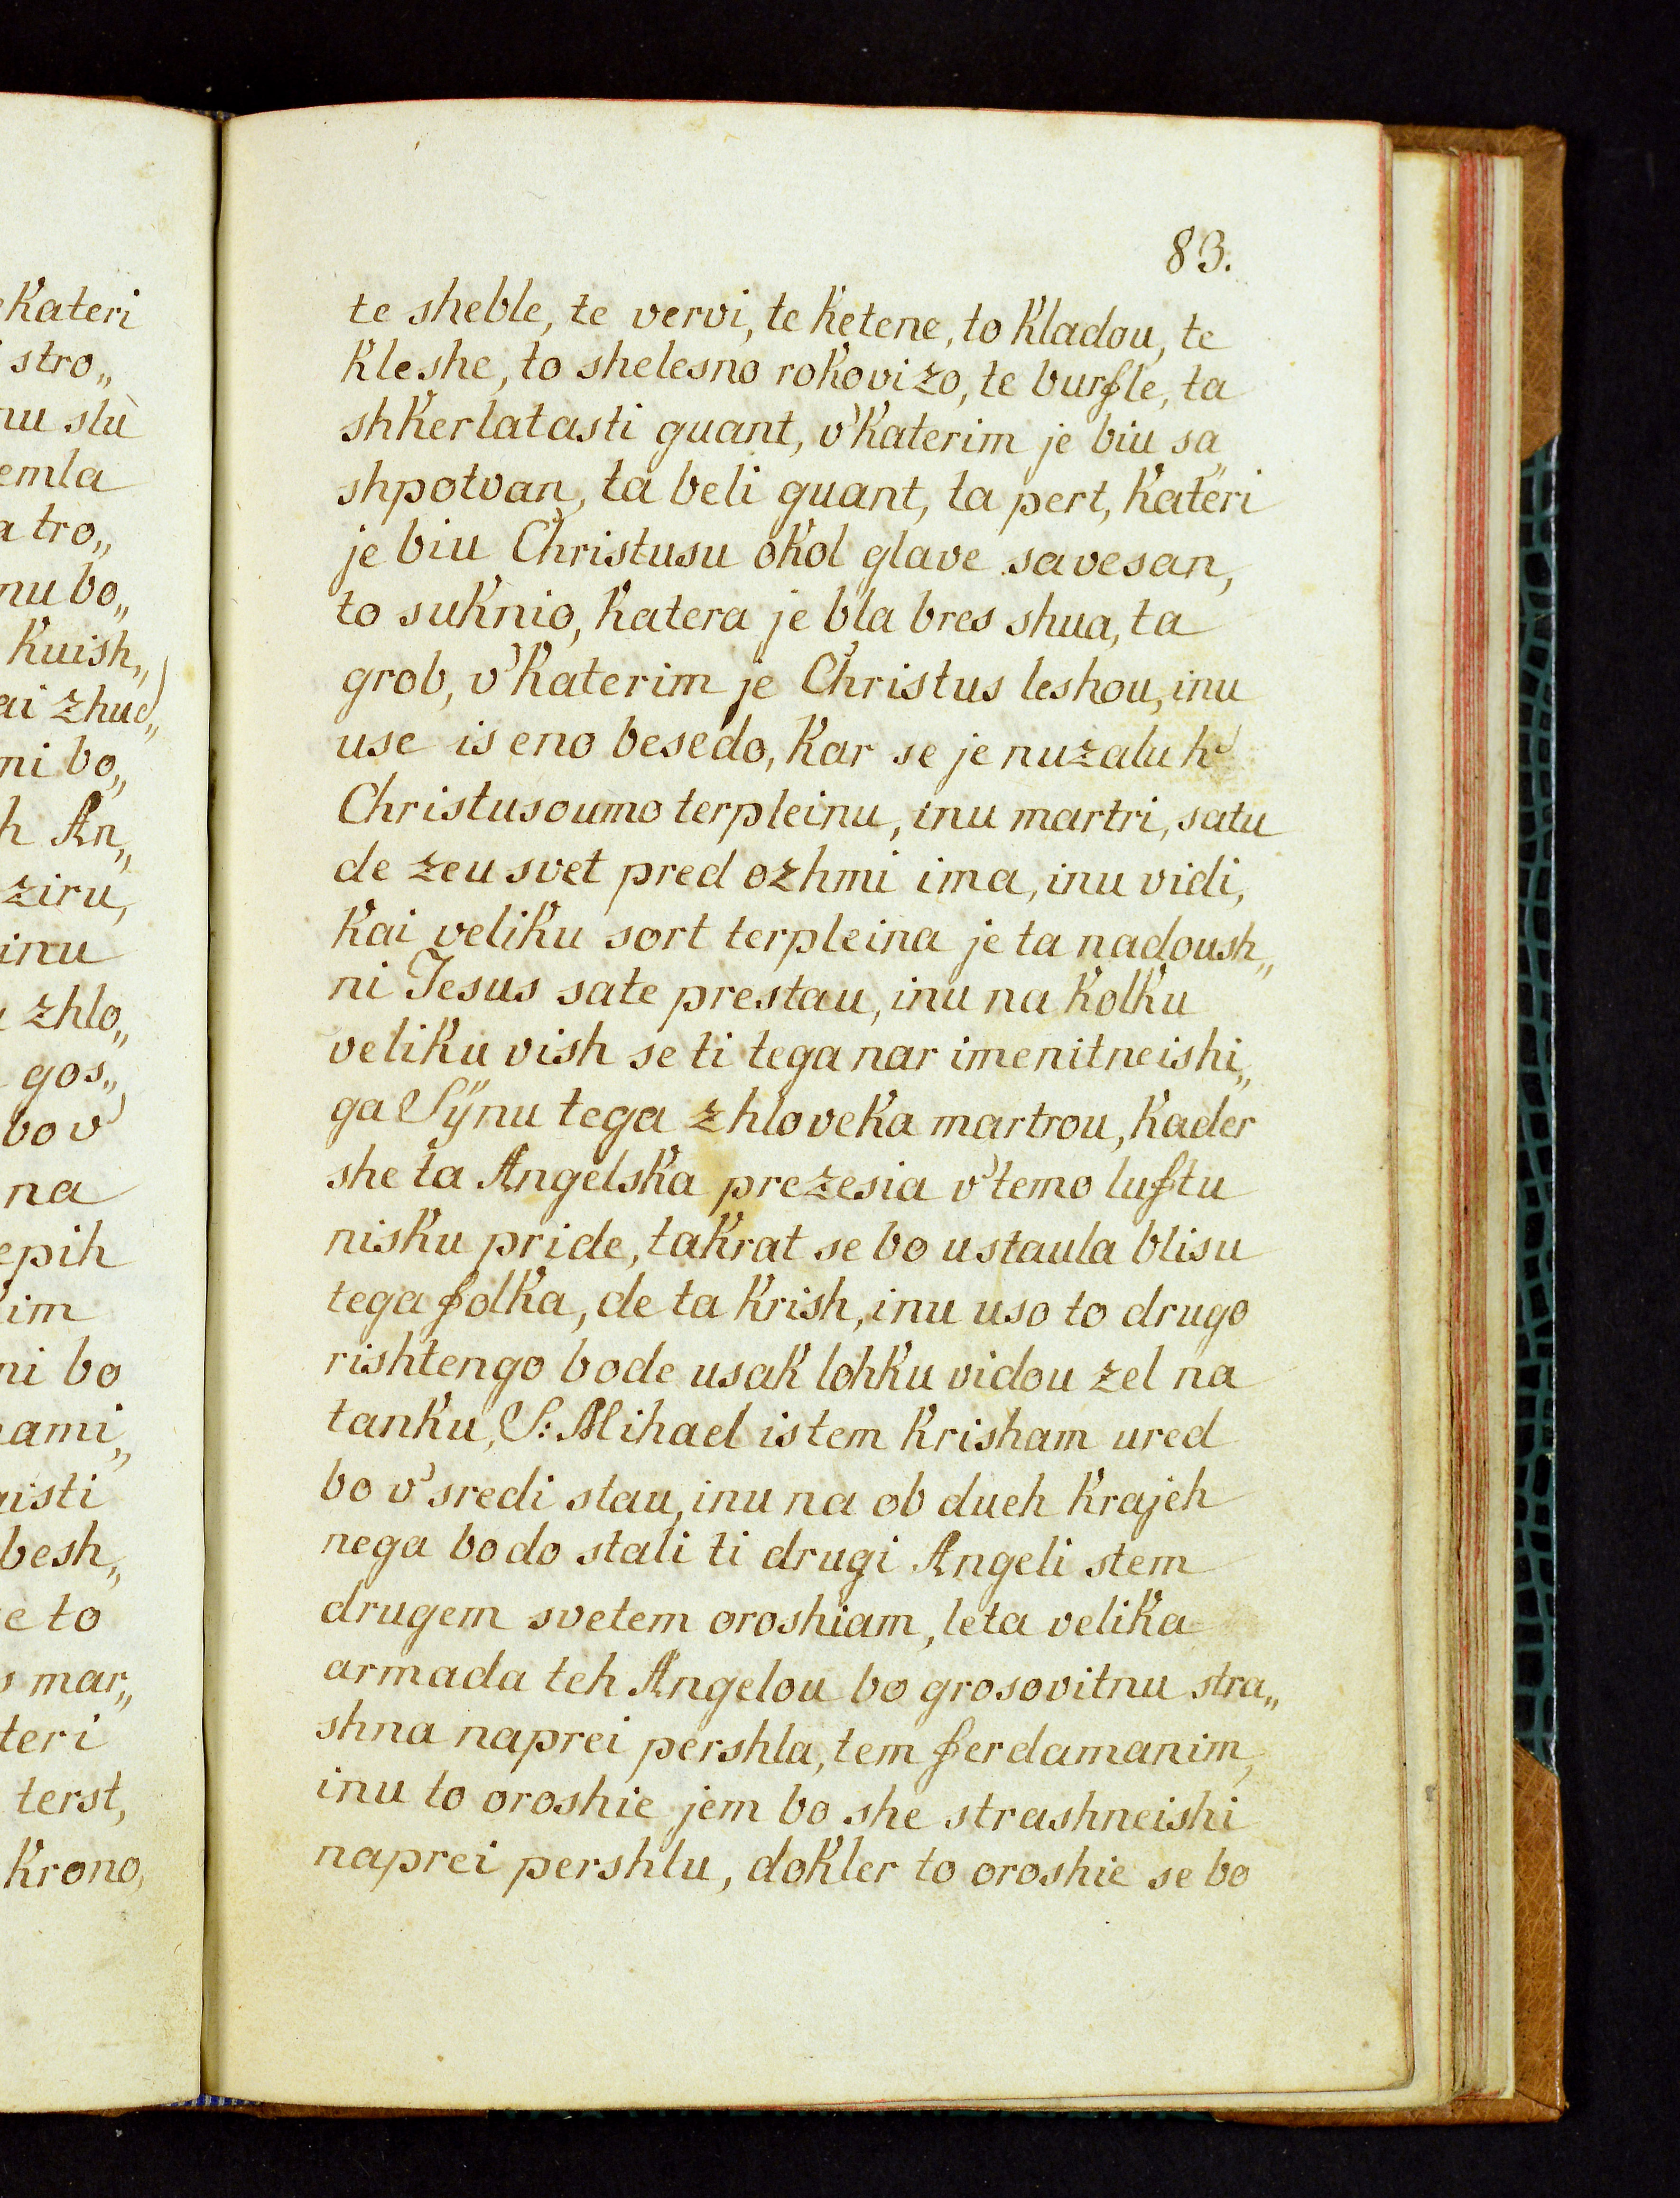 Kateri
stro„
nu slù
emla
a tro„
nu bo„
Kuish„
ai zhud„
ni bo„
h An„
ziru,
inu
zhlo„
gos„
bo v'
na
epih
im
ni bo
ami„
isti
besh„
e to
mar„
teri
terst,
Krono,
83.
te sheble, te vervi, te Ketene, to Kladou, te
Kleshe, to shelesno rokovizo, te burfle, ta
shkerlatasti guant, v'Katerim je biu sa„
shpotvan, ta beli guant, ta pert, Kateri
je biu Christusu okol glave savesan,
to suknio, Katera je bla bres shua, ta
grob, v'Katerim je Christus leshou, inu
use is eno besedo, Kar se je nuzalu h'
Christusoumo terpleinu, inu martri, satu
de zeu svet pred ozhmi ima, inu vidi,
Kai veliku sort terpleina je ta nadoush„
ni Jesus sate prestau, inu na Kolku
veliku vish se ti tega nar imenitneishi„
ga Sÿnu tega zhloveka martrou, Kader
she ta Angelska prezesia v'temo luftu
nisku pride, takrat se bo ustaula blisu
tega folka, de ta Krish, inu uso to drugo
rishtengo bode usak lohku vidou zel na
tanku, S: Mihael istem Krisham ured
bo v'sredi stau, inu na ob dueh Krajeh
nega bodo stali ti drugi Angeli stem
drugem svetem oroshiam, leta velika
armada teh Angelou bo grosovitnu stra„
shna naprei pershla, tem ferdamanim,
inu to oroshie jem bo she strashneishi
naprei pershlu, dokler to oroshie se bo